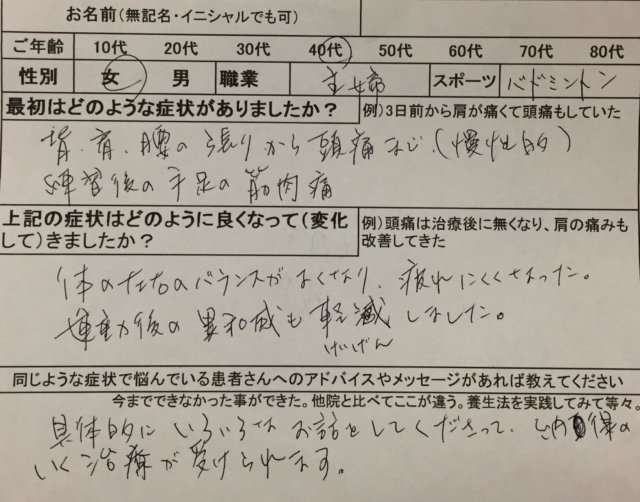 お名前(無記名・イニシャルでも可)
ご年齢 10代 20代 30代 40代 50代 60代 70代 80代
性別 女 男 職業 主婦 スポーツ バドミントン
最初はどのような症状がありましたか? 例)3日前から肩が痛くて頭痛もしていた
背、肩、腰の張りから頭痛など(慢性的)
練習後の手足の筋肉痛
上記の症状はどのように良くなって(変化 例)頭痛は治療後に無くなり、肩の痛みも
して)きましたか? 改善してきた
体の左右のバランスがよくなり、疲れにくくなった。
運動後の異和感も軽減しました。
けいげん
同じような症状で悩んでいる患者さんへのアドバイスやメッセージがあれば教えてください
今までできなかった事ができた。他院と比べてここが違う。養生法を実践してみて等々。
具体的にいろいろなお話をしてくださって、納得の
いく治療が受けられます。